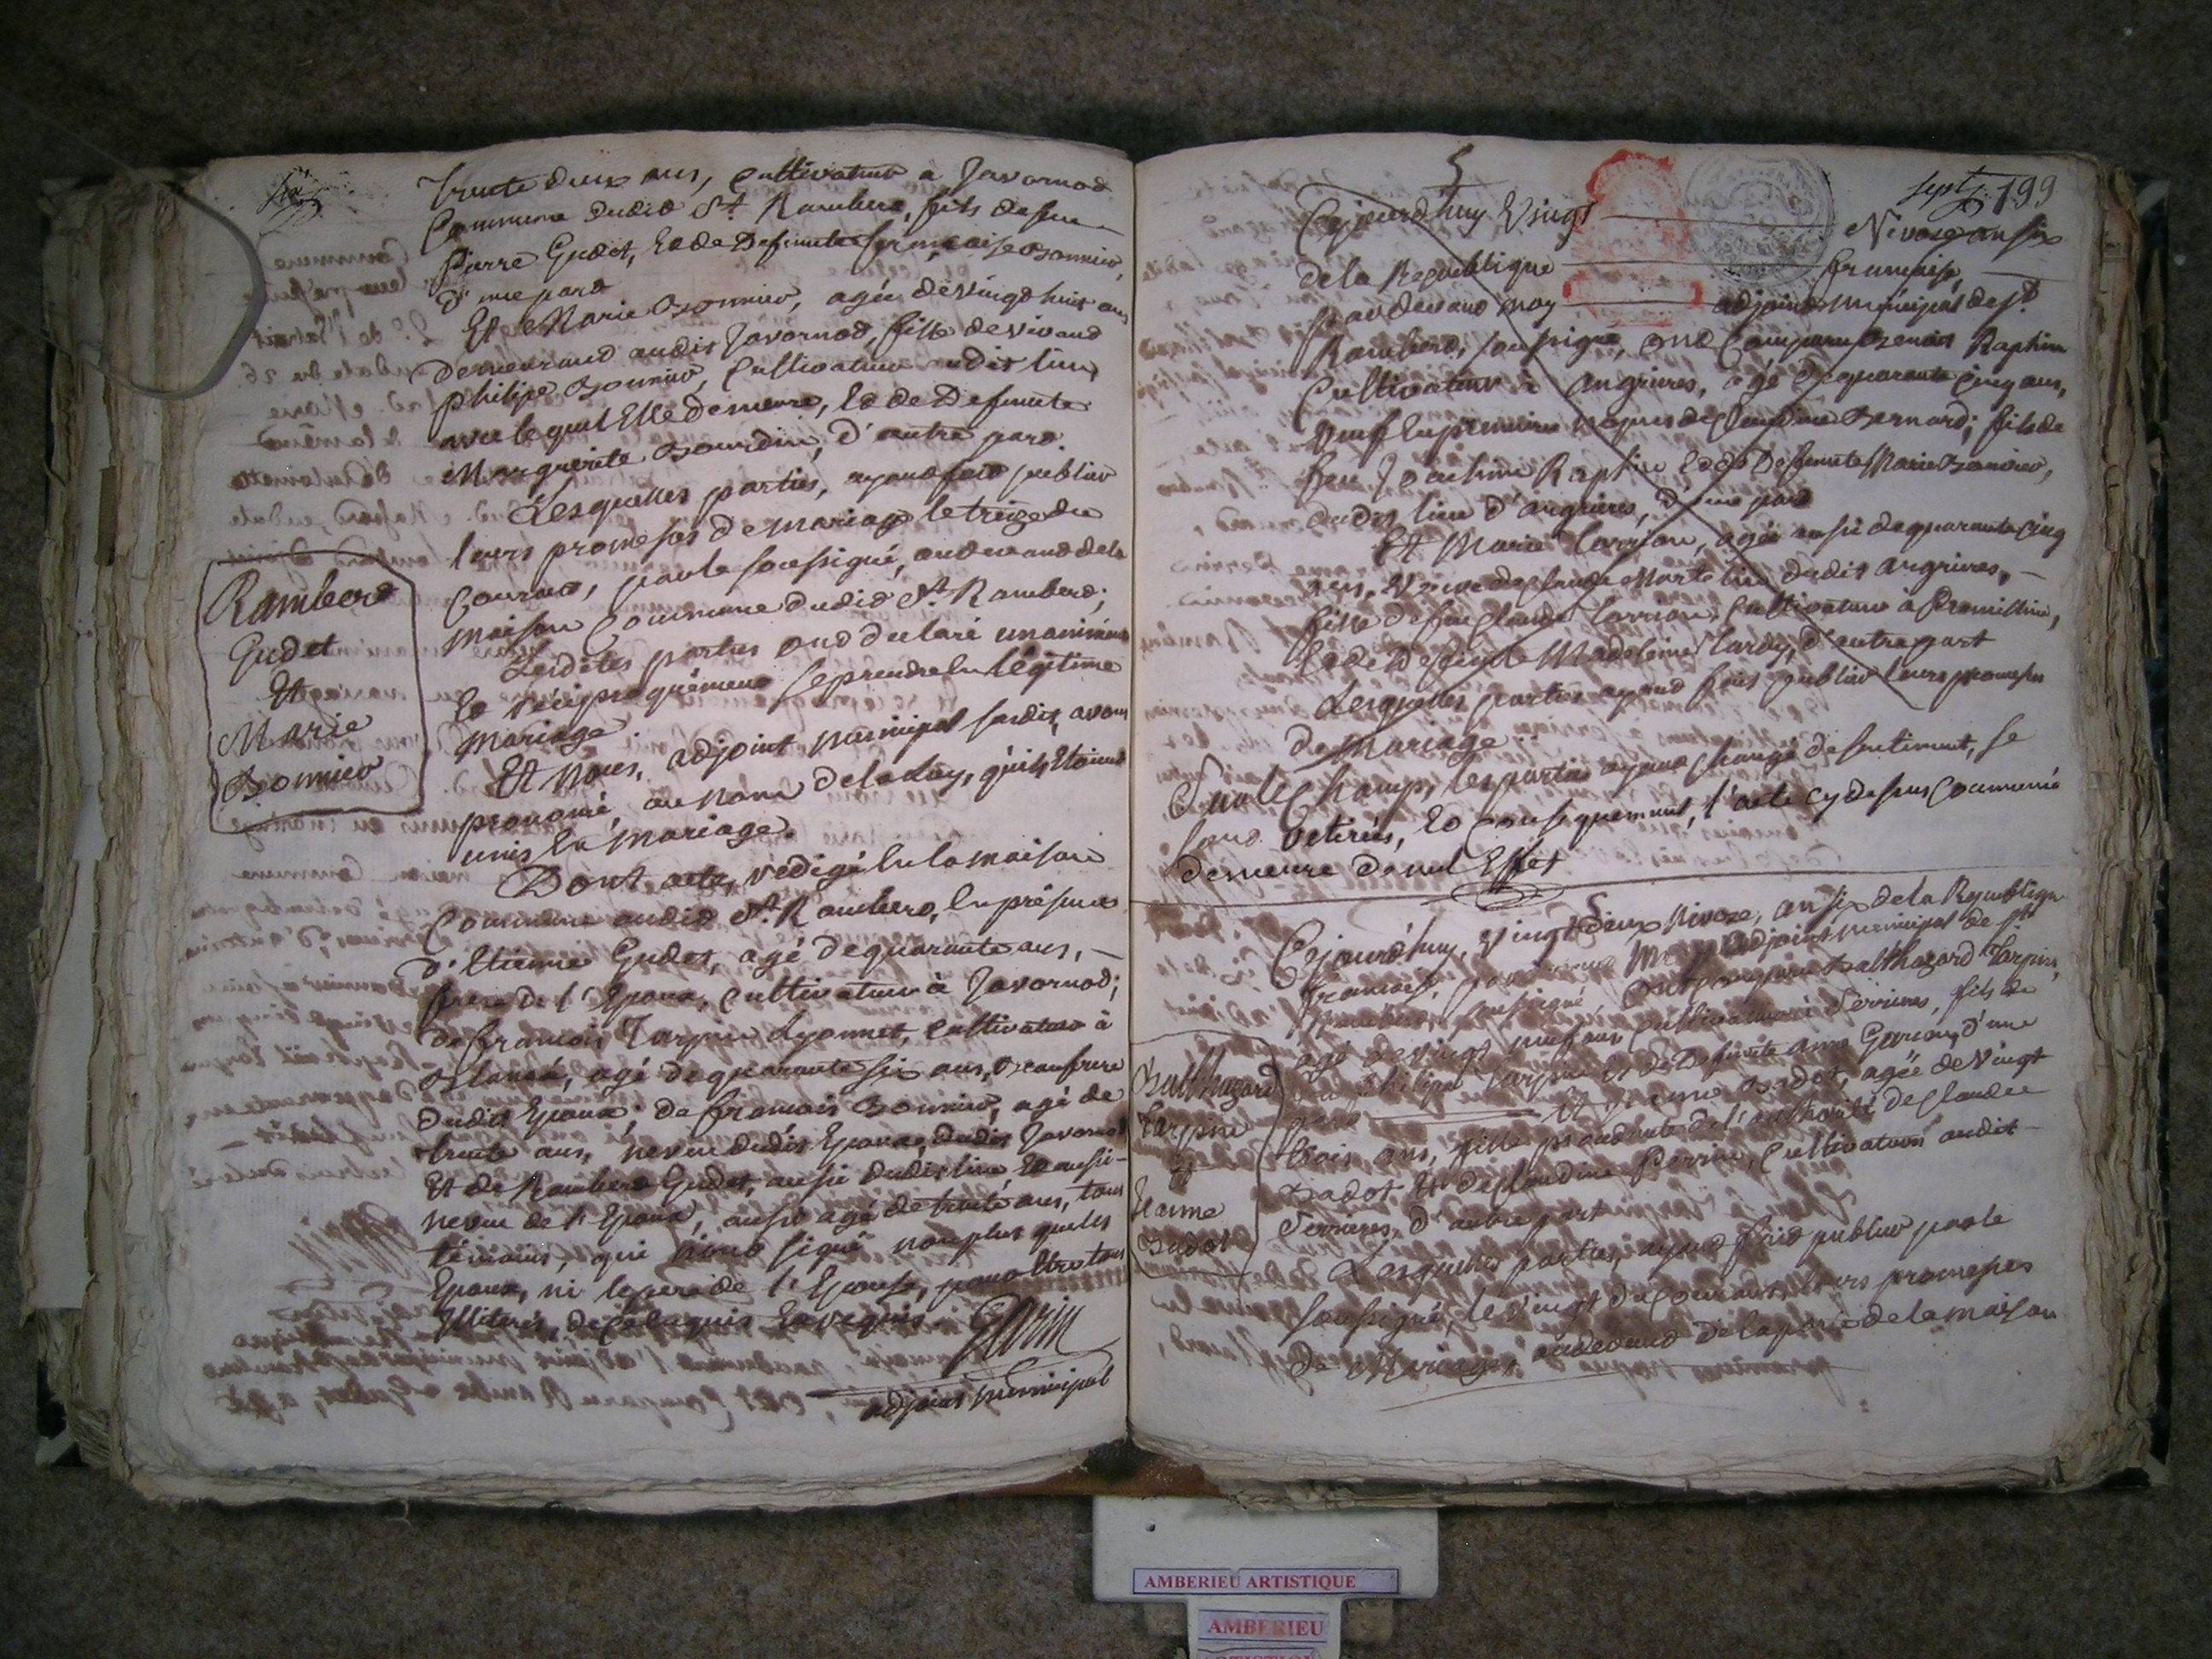 trente deux ans, Cultivateur a Javornod
Commune dudid St. Ramberd, fils de feu
Pierre Gudet, Et de Defunte françoise Bonnier,
d'une pard
Et Marie Bonnier, agée de vingd huit ans
demeurand audit Javornod, fille de vivand
philipe Bonnier, Cultivateur audit lieu
avec lequel Elle demeure, Ed de Defunte
Marguerite Bourdin, d'autre pard
Lesquelles parties, ayand faid publier
leurs promesses de mariage le treize du
Courand, par le soussigné, audevand de la
maison Commune dudid St. Ramberd;
Lesdites parties ond declaré unanimément
Ed réciproquémend se prendre En légitime
mariage.
Et Nous, adjoint municipal susdit, avons
prononcé, au Nom de la Loy, qu'ils Etoiend
unis En Mariage.
Dont acte, rédigé En la maison
Commune audid St. Ramberd, En présence
d'Etienne Gudet, agé de quarante ans,
frere de l'Epoux, Cultivateur à Javornod;
de françois Tarpin Lyonnet, Cultivateur à
Blanaz, agé de quarante six ans, Beaufrere
dudit Epoux; de françois Bonnier, agé de
trente ans, neveu dudit Epoux, dudit Javornod
Et de Ramberd Gudet, aussi dudit lieu Ed aussi
neveu de l'Epoux, aussi agé de trente ans, tous
témoins, qui n'ond signé non plus que les
Epoux, ni le pere de l'Epouse, pour Etre tous
Illitérés, de Ce Enquis Ed requis.
Garin
adjoint municipal
Ramberd
Gudet
Et
Marie
Bonnier
sept 199
5
Cejourd'huy Vingt Nivose an six
de la Republique française,
pardevand moy adjoint municipal de St.
Ramberd, soussigné, ond Comparu Benoit Raphin
Cultivateur à angrieres, agé de quarante cinq ans,
veuf En premieres noces de Claudine Bernard; fils de
feu Joachim Raphin Ed de Defunte Marie Bonnier,
dudit lieu d'angrieres, d'une pard
Et Marie Carrion, agée aussi de quarante cinq
ans, Veuve de Claude Martelin dudit angrieres,
fille de feu Claude Carrion, Cultivateur à Premillieu,
Ed de Defunte Madeleine Tardy, d'autre part
Lesquelles parties ayand fait publier leurs promesses
de Mariage
Sur le Champ, les parties ayant changé de sentiment, se
sond retirées, Ed Conséquemment, l'acte cy dessus Commencé
demeure de nul Effet
5
Cejourd'huy, vingt deux Nivose, an six de la Republique
française, pardevand Moy adjoint municipal de St.
Ramberd, soussigné, Ont comparu Balthazard Tarpin,
agé de vingt neuf ans Cultivateur à Serrieres, fils de
feu Philipe Tarpin Et de Defunte anne Garion, d'une
pard Et Jeanne Badot, agée de vingt
trois ans, fille procédante de l'authorité de Claude
Badot, Et de Claudine Perrin, Cultivateur audit
Serrieres, d'autre part
Lesquelles parties, ayand faid publier par le
soussigné, le vingt du Courant, leurs promesses
de Mariage, audevand de la porte de la maison
Balthazard
Tarpin
et
Jeanne
Badot
AMBERIEU ARTISTIQUE
AMBERIEU